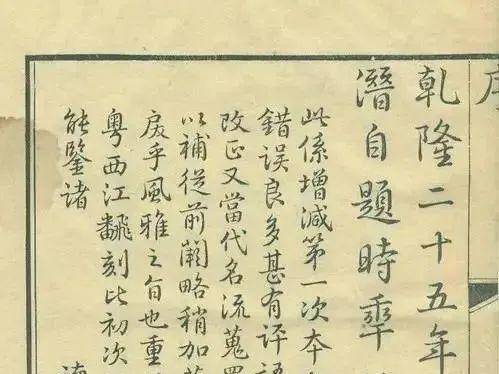 序
乾隆二十五年
潛自題時年
此係增減第一次本
錯誤良多甚有評語
改正又當代名流蒐羅
以補從前闕略稍加
戾乎風雅之旨也重
粵西江翻刻此初次
能鑒諸